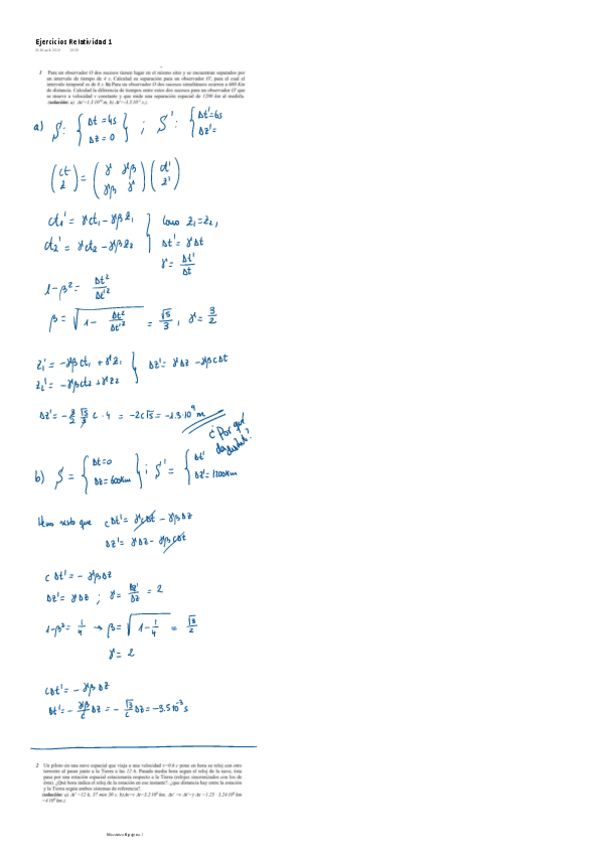 Ejercicios Relatividad 1
1 Para un observador O dos sucesos tienen lugar en el mismo sitio y se encuentran separados por
un intervalo de tiempo de 4 s. Calculad su separación para un observador O', para el cual el
intervalo temporal es de 6 s. b) Para un observador O dos sucesos simultáneos ocurren a 600 Km
de distancia. Calculad la diferencia de tiempos entre estos dos sucesos para un observador O' que
se mueve a velocidad v constante y que mide una separación espacial de 1200 km al medirla.
a) S: { Δt = 4s Δz = 0 } ; S': { Δt' = 6s Δz' =
(ct z) = (γ γβ γβ γ) (ct' z')
ct₁' = γct₁ - γβz₁ } Como z₁ = z₂,
ct₂' = γct₂ - γβz₂ Δt' = γΔt
γ = Δt'/Δt
1-β² = Δt²/Δt'²
β = √(1 - Δt²/Δt'²) = √5/3, γ = 3/2
z₁' = -γβct₁ + γz₁ } Δz' = γΔz - γβcΔt
z₂' = -γβct₂ + γz₂
Δz' = -3/2 √5/3 c · 4 = -2c√5 = -1.3·10⁹ m
¿Por qué
b) S = { Δt = 0 Δz = 600km } ; S' = { Δt' Δz' = 1200km
Hemos visto que cΔt' = γcΔt - γβΔz
Δz' = γΔz - γβcΔt
cΔt' = -γβΔz
Δz' = γΔz ; γ = Δz'/Δz = 2
1-β² = 1/4 → β = √(1 - 1/4) = √3/2
γ = 2
cΔt' = -γβΔz
Δt' = -γβ/c Δz = -√3/c Δz = -3.5·10⁻³ s
2 Un piloto en una nave espacial que viaja a una velocidad v=0.6 c pone en hora su reloj con otro
terrestre al pasar junto a la Tierra a las 12 h. Pasada media hora según el reloj de la nave, ésta
pasa por una estación espacial estacionaria respecto a la Tierra (relojes sincronizados con los de
ésta). ¿Qué hora indica el reloj de la estación en ese instante?. ¿qué distancia hay entre la estación
y la Tierra según ambos sistemas de referencia?.